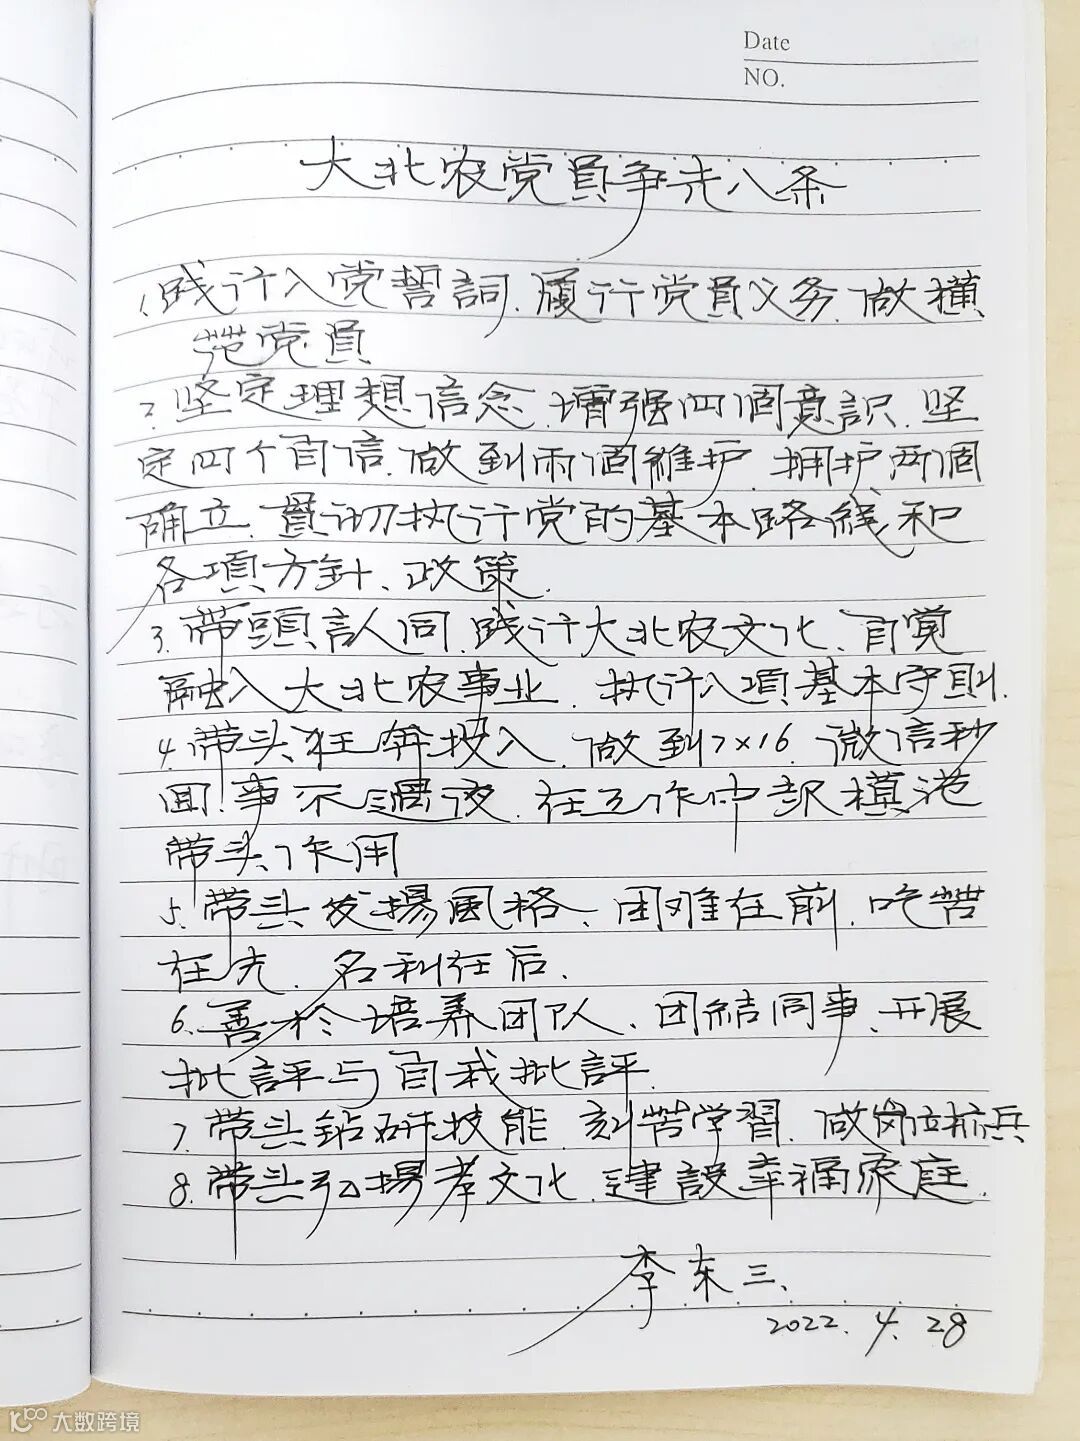 Date
NO.
大北农党員争先八条
1、践行入党誓詞、履行党員义务、做模
范党員
2、坚定理想信念、增强四個意識、坚
定四个自信、做到两個維护、拥护两個
确立、貫切执行党的基本路綫和
各項方針、政策.
3、带頭認同、践行大北农文化、自覚
融入大北农事业、执行八項基本守則.
4、带头狂奔投入、做到7×16、微信秒
回!事不過夜、在工作中起模范
带头作用
5、带头发揚風格、困难在前、吃苦
在先、名利在后.
6、善於培养团队、团結同事、开展
批評与自我批評.
7、带头鈷研技能、刻苦学習、做岗位标兵
8、带头弘揚孝文化、建設幸福家庭.
李东三、
2022.4.28
大数跨境